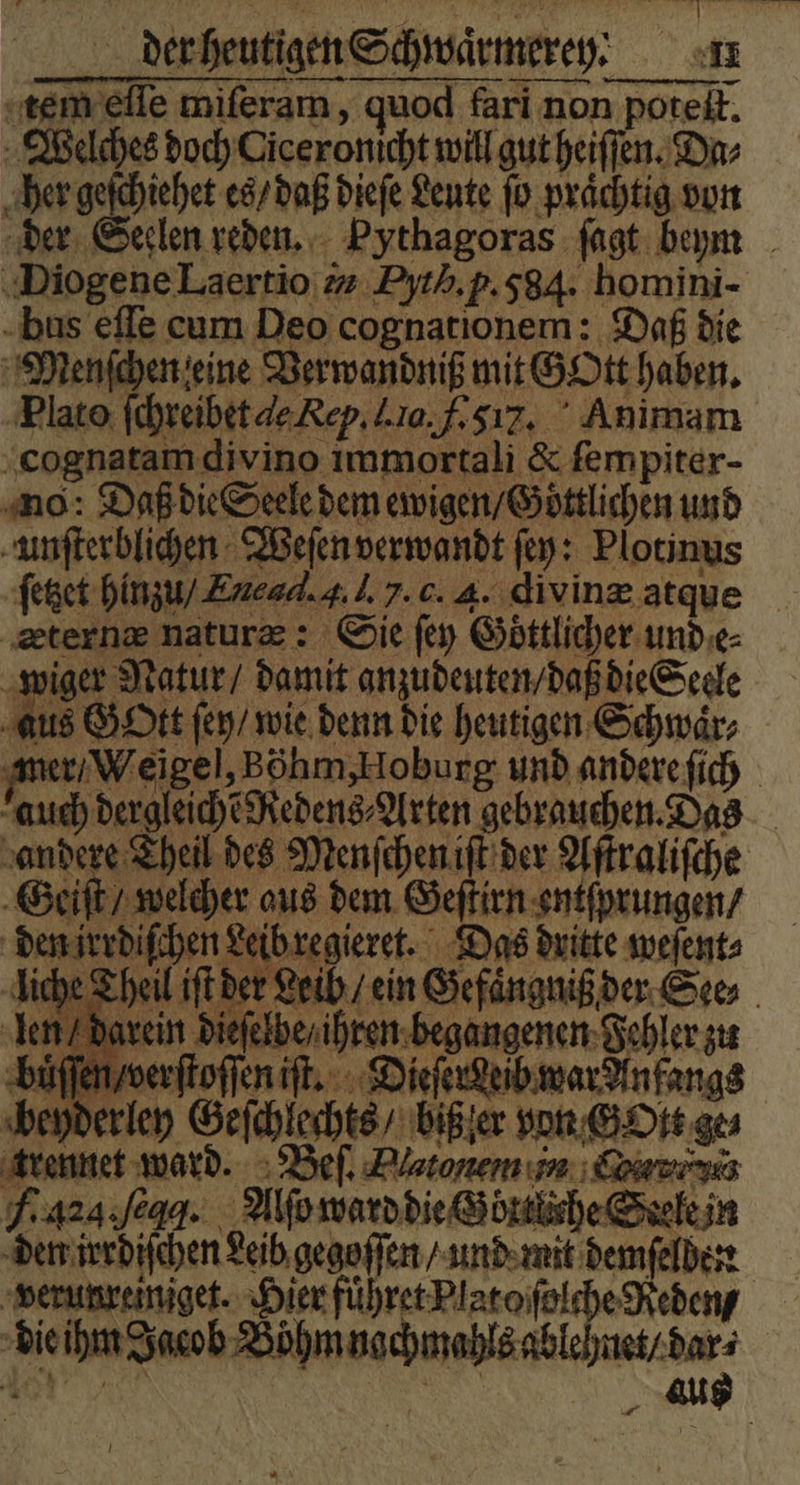 der heutigen Schwårmerey. 11
tem eſſe miſeram, quod fari non poteſt.
Welches doch Ciceronicht will gut heiſſen. Da⸗
her geſchiehet es/ daß dieſe Leute ſo pråchtig von
der Seelen reden. Pythagoras ſagt beym
Diogene Laertio in Pyth. p. 584. homini-
bus eſſe cum Deo cognationem: Daß die
Menſchen eine Verwandniß mit GOtt haben.
Plato ſchreibet de Rep. l. 10. f. 517. Animam
cognatam divino immortali & ſempiter-
no: Daß die Seele dem ewigen/ Göttlichen und
unſterblichen Weſen verwandt ſey: Plotinus
ſetzet hinzu/ Enead. 4. l. 7. c. 4. divinæ atque
æternæ naturæ: Sie ſey Göttlicher und e⸗
wiger Natur/ damit anzudeuten/ daß die Seele
aus GOtt ſey/ wie denn die heutigen Schwår⸗
mer/ Weigel, Böhm, Hoburg und andere ſich
auch dergleichẽ Redens⸗Arten gebrauchen. Das
andere Theil des Menſchen iſt der Aſtraliſche
Geiſt/ welcher aus dem Geſtirn entſprungen/
den irrdiſchen Leib regieret. Das dritte weſent⸗
liche Theil iſt der Leib/ ein Gefångniß der See⸗
len/ darein dieſelbe/ ihren begangenen Fehler zu
bůſſen/ verſtoſſen iſt. Dieſer Leib war Anfangs
beyderley Geſchlechts/ biß er von GOtt ge⸗
trennet ward. Beſ. Platonem in Convivio
f. 424. ſeqq. Alſo ward die Göttliche Seele in
den irrdiſchen Leib gegoſſen/ und mit demſelben
verunreiniget. Hier führet Plato ſolche Reden/
die ihm Jacob Böhm nachmahls ablehnet/ dar⸗
aus